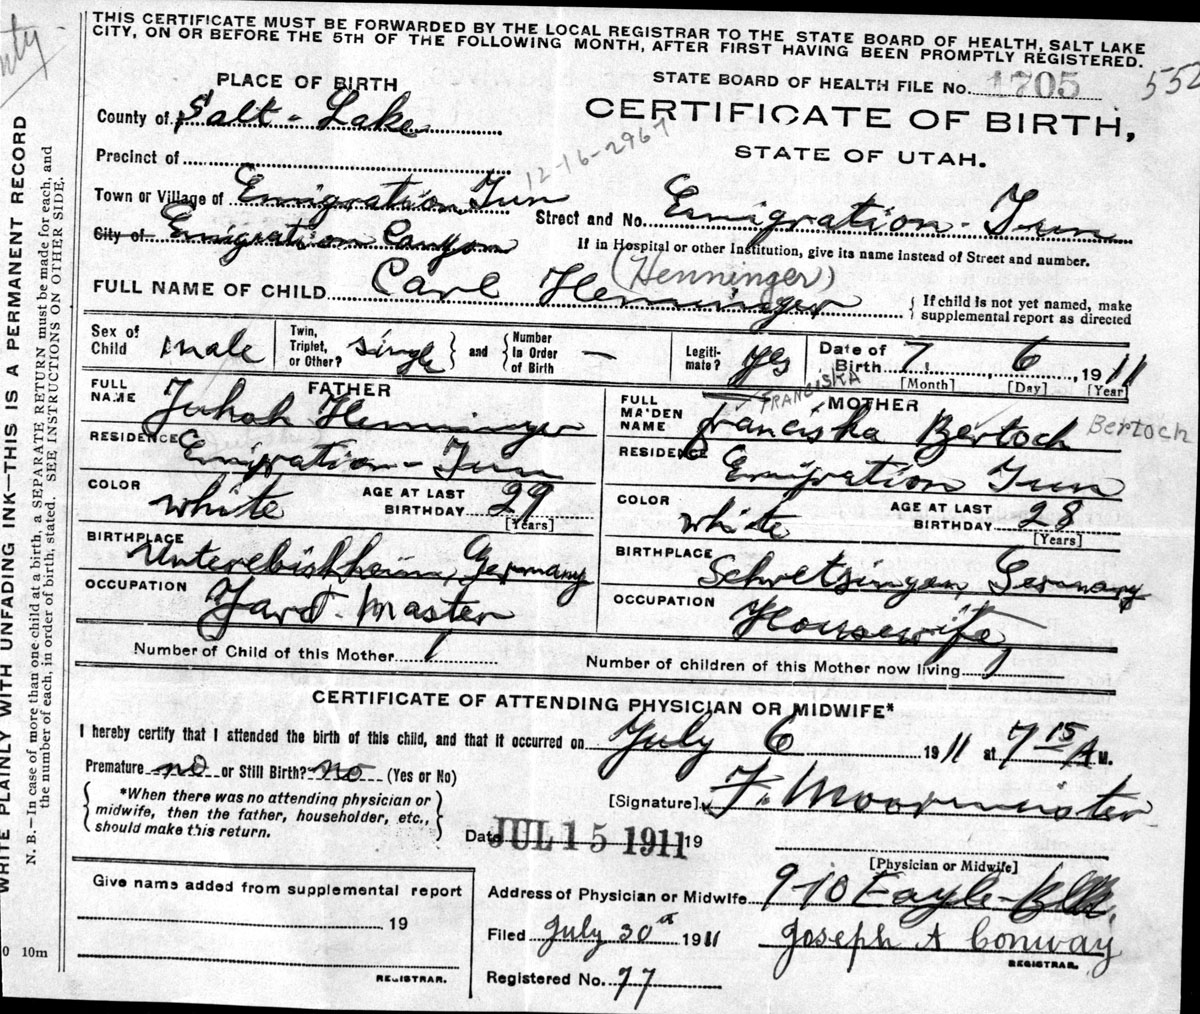 THIS CERTIFICATE MUST BE FORWARDED BY THE LOCAL REGISTRAR TO THE STATE BOARD OF HEALTH, SALT LAKE
CITY, ON OR BEFORE THE 5TH OF THE FOLLOWING MONTH, AFTER FIRST HAVING BEEN PROMPTLY REGISTERED.
WRITE PLAINLY WITH UNFADING INK—THIS IS A PERMANENT RECORD
N. B.—In case of more than one child at a birth, a SEPARATE RETURN must be made for each, and
the number of each, in order of birth, stated. SEE INSTRUCTIONS ON OTHER SIDE.
PLACE OF BIRTH
County of Salt-Lake
Precinct of
Town or Village of Emigration
City of Emigration Canyon
12-16-2967
STATE BOARD OF HEALTH FILE No. 1705
552
CERTIFICATE OF BIRTH,
STATE OF UTAH.
Street and No. Emigration
If in Hospital or other Institution, give its name instead of Street and number.
(Henninger)
FULL NAME OF CHILD Carl Henninger
If child is not yet named, make
supplemental report as directed
Sex of Child male
Twin, Triplet, or Other? single and Number In Order of Birth —
Legitimate? yes
Date of Birth 7, 6, 1911
[Month] [Day] [Year]
FATHER
FULL NAME Henninger
RESIDENCE Emigration
COLOR white AGE AT LAST BIRTHDAY 29
[Years]
BIRTHPLACE Germany
OCCUPATION Yard-Master
FRANCISKA
MOTHER
FULL MAIDEN NAME Franciska Bertoch Bertoch
RESIDENCE Emigration
COLOR white AGE AT LAST BIRTHDAY 28
[Years]
BIRTHPLACE Schwetzingen, Germany
OCCUPATION Housewife
Number of Child of this Mother 1
Number of children of this Mother now living 1
CERTIFICATE OF ATTENDING PHYSICIAN OR MIDWIFE*
I hereby certify that I attended the birth of this child, and that it occurred on July 6 1911 at 7 15 A M.
Premature no or Still Birth? no (Yes or No)
*When there was no attending physician or
midwife, then the father, householder, etc.,
should make this return.
[Signature] F. Moormeister
Date JUL 15 1911 19
[Physician or Midwife]
Give name added from supplemental report
19
REGISTRAR.
Address of Physician or Midwife 910 Eagle
Filed July 30th 1911 Joseph A Conway
REGISTRAR.
Registered No. 77
10m